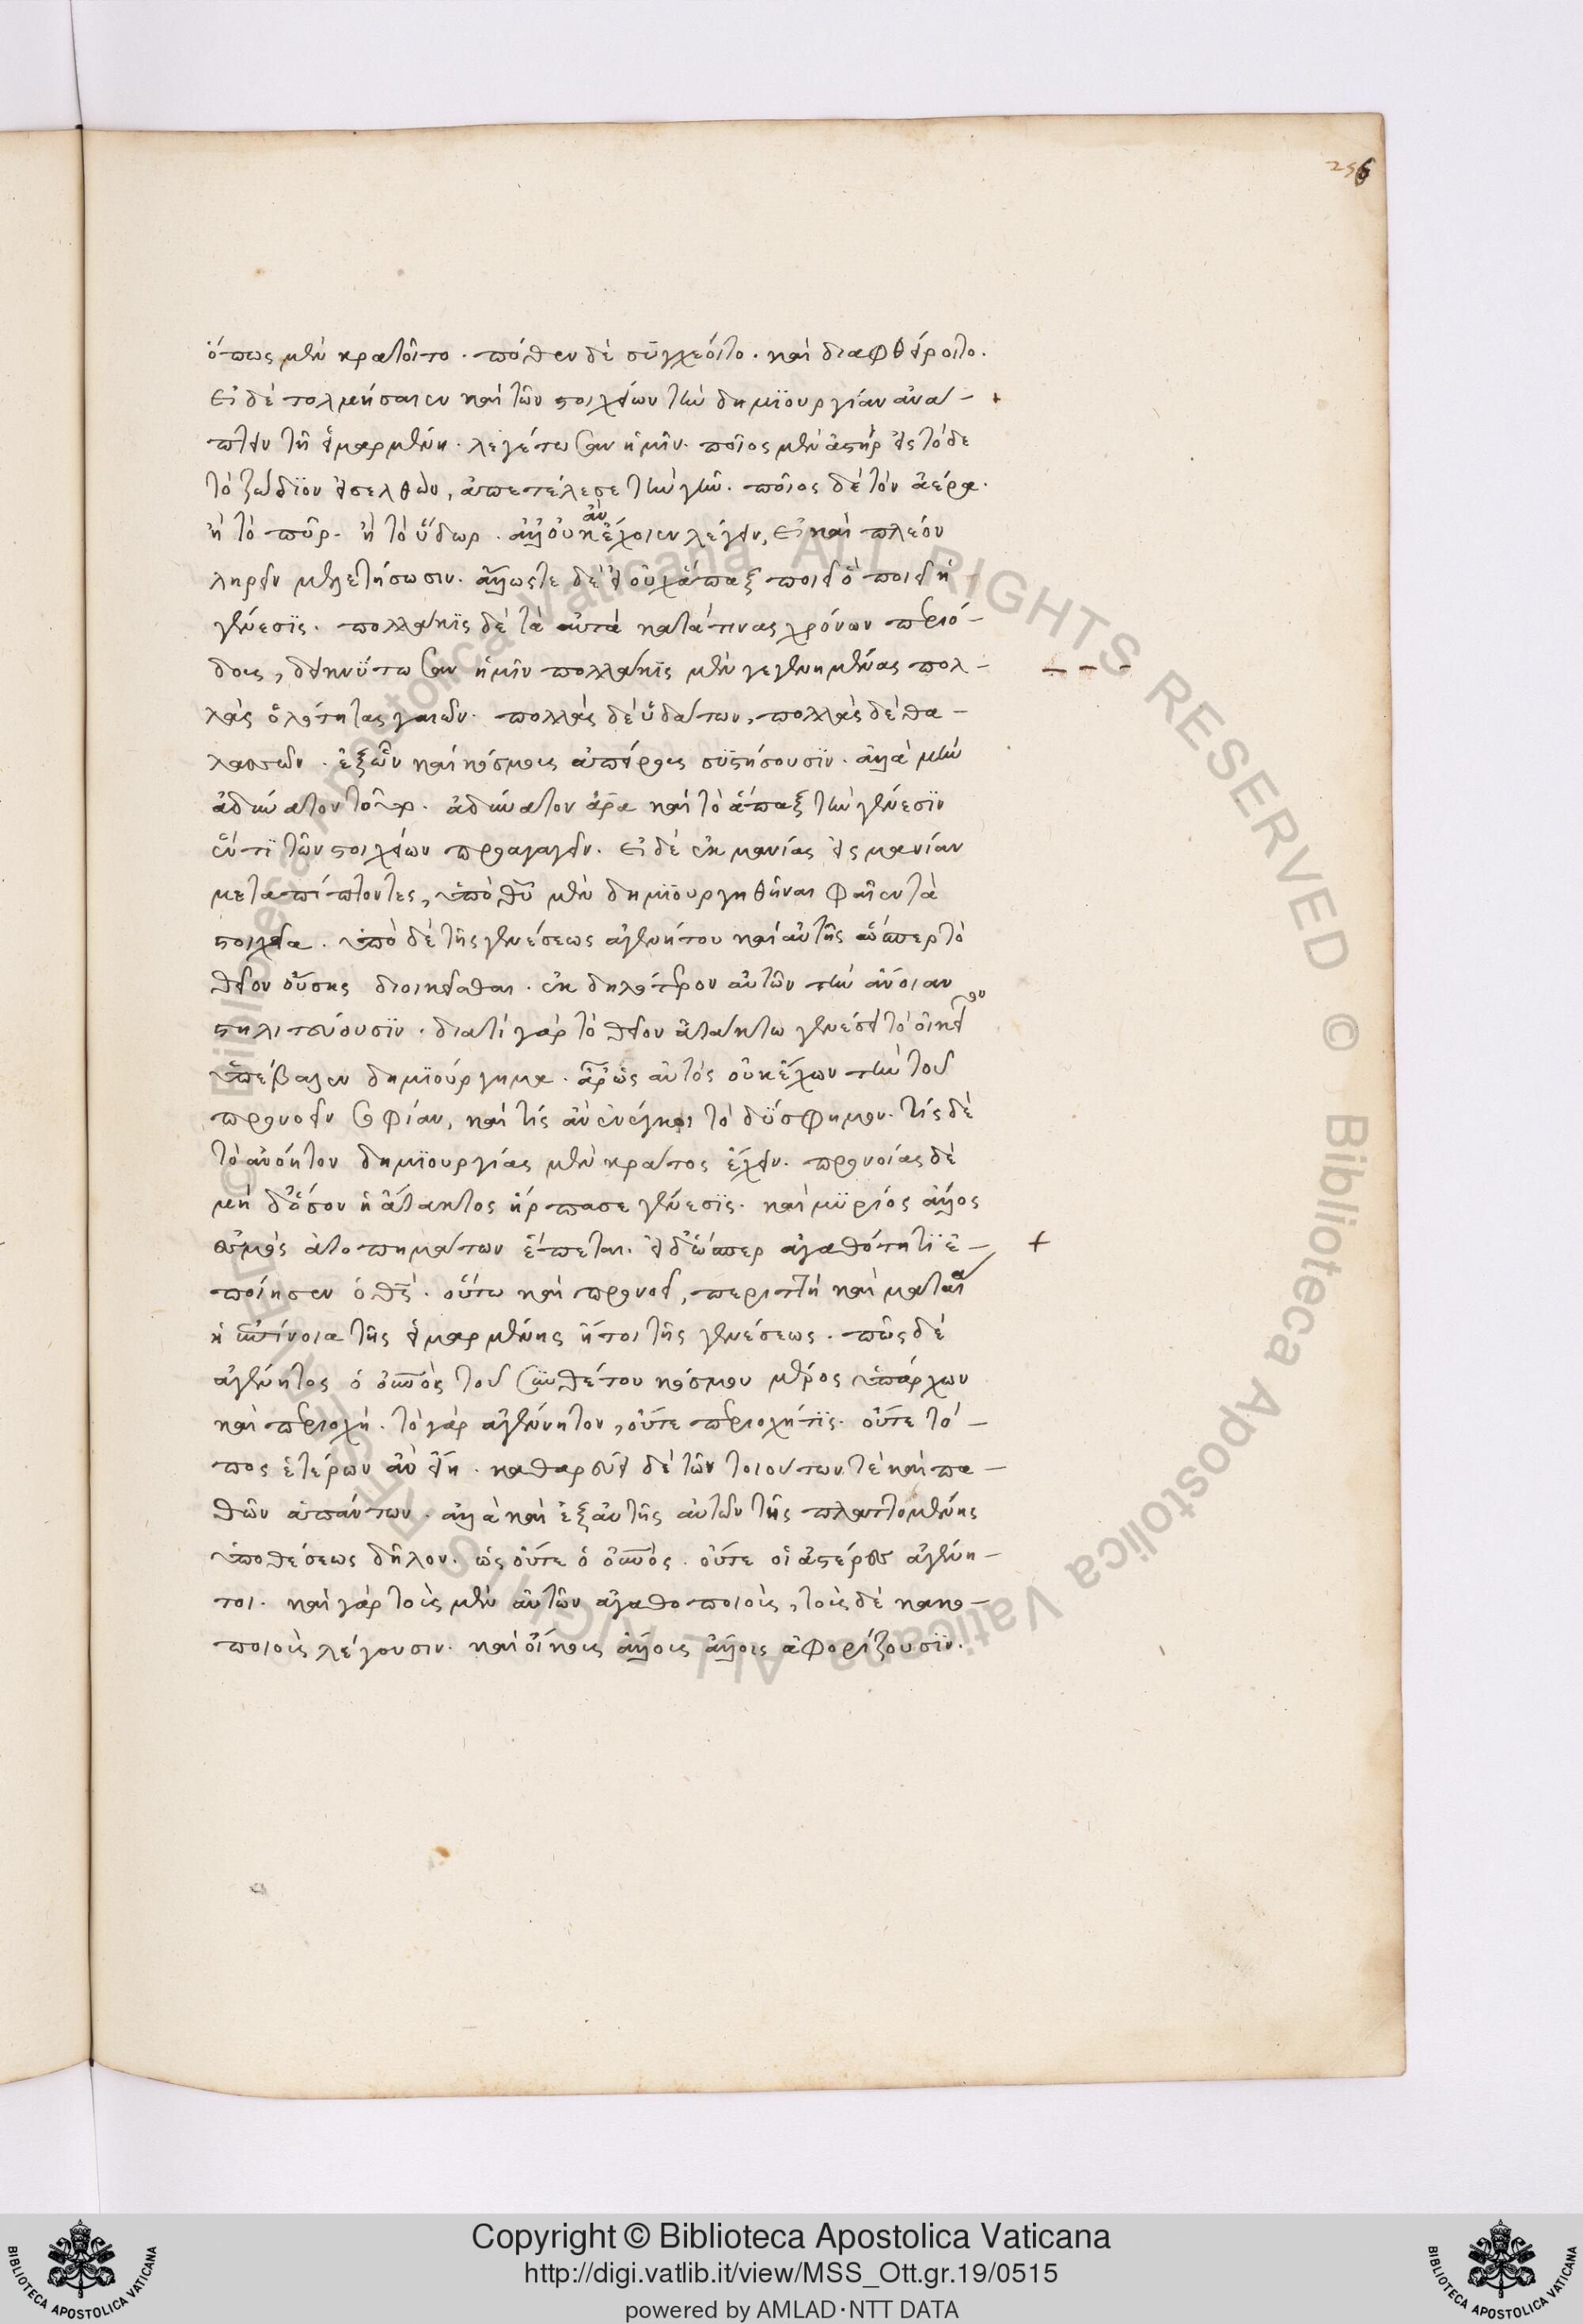 256
ὅπως μὲν κρατοῖτο. πόθεν δὲ συγχέοιτο. καὶ διαφθείροιτο.
εἰ δὲ τολμήσαιεν καὶ τῶν στοιχείων τὴν δημιουργίαν ἀνά-
πτειν τῇ εἱμαρμένη. λεγέτωσαν ἡμῖν. ποῖος μὲν ἀστὴρ εἰς τόδε
τὸ ζώδιον εἰσελθὼν, ἀπετέλεσε τὴν γῆν. ποῖος δὲ τὸν ἀέρα.
ἢ τὸ πῦρ. ἢ τὸ ὕδωρ. ἀλλ' οὐκ ἂν ἔχοιεν λέγειν, εἰ καὶ πλέον
ληρεῖν μελετήσωσιν. ἄλλως τε δὲ εἰ οὐχ ἅπαξ ποιεῖ ὃ ποιεῖ ἡ
γένεσις. πολλάκις δὲ τὰ αὐτὰ κατά τινας χρόνων περιό-
δους, δεικνύτωσαν ἡμῖν πολλάκις μὲν γεγενημένας πολ-
λὰς ὁλότητας γαιῶν. πολλὰς δὲ ὑδάτων, πολλὰς δὲ θα-
λασσῶν. ἐξ ὧν καὶ κόσμους ἀπείρους συστήσουσιν. ἀλλὰ μὴν
ἀδύνατον τοῦτο. ἀδύνατον ἄρα καὶ τὸ ἅπαξ τὴν γένεσιν
ἕν τι τῶν στοιχείων προαγαγεῖν. εἰ δὲ ἐκ μανίας εἰς μανίαν
μεταπίπτοντες, ὑπὸ θυ μὲν δημιουργηθῆναι φαῖεν τὰ
στοιχεῖα. ὑπὸ δὲ τῆς γενέσεως ἀγενήτου καὶ αὐτῆς ὥσπερ τὸ
θεῖον οὔσης διοικεῖσθαι. ἐκδηλότερον αὐτῶν τὴν ἄνοιαν
στηλιτεύουσιν. διατί γὰρ τὸ θεῖον ἀτάκτω γενέσει τὸ οἰκεῖον
ὑπέβαλεν δημιούργημα. ἆρ' ὡς αὐτὸς οὐκ ἔχων τὴν τοῦ
προνοεῖν σοφίαν, καὶ τίς ἂν ἐνέγκοι τὸ δύσφημον. τίς δὲ
τὸ ἀνόητον δημιουργίας μὲν κράτος ἔχειν. προνοίας δὲ
μὴ δ' ὅσον ἡ ἄτακτος ἥρπασε γένεσις. καὶ μυρίος ἄλλος
ἀτοπημάτων ἕπεται. εἰ δ' ὥσπερ ἀγαθότητι ἐ-
ποίησεν ὁ θς. οὕτω καὶ προνοεῖ, περιττὴ καὶ ματαία
ἡ ἐπίνοια τῆς εἱμαρμένης ἤτοι τῆς γενέσεως. πῶς δὲ
ἀγένητος ὁ οὐνὸς τοῦ συνθέτου κόσμου μέρος ὑπάρχων
καὶ περιοχή. τὸ γὰρ ἀγέννητον, οὔτε περιοχή τις. οὔτε τό-
πος ἑτέρων ἂν εἴη. καθαρεύει δὲ τῶν τοιούτων τὲ καὶ πα-
θῶν ἁπάντων. ἀλλὰ καὶ ἐξ αὐτῆς αὐτῶν τῆς πλαττομένης
ὑποθέσεως δῆλον. ὡς οὔτε ὁ οὐνὸς. οὔτε οἱ ἀστέρες ἀγένη-
τοι. καὶ γὰρ τοὺς μὲν αὐτῶν ἀγαθοποιοὺς, τοὺς δὲ κακο-
ποιοὺς λέγουσιν. καὶ οἴκους ἄλλους ἄλλοις ἀφορίζουσιν.
Copyright © Biblioteca Apostolica Vaticana
http://digi.vatlib.it/view/MSS_Ott.gr.19/0515
powered by AMLAD·NTT DATA